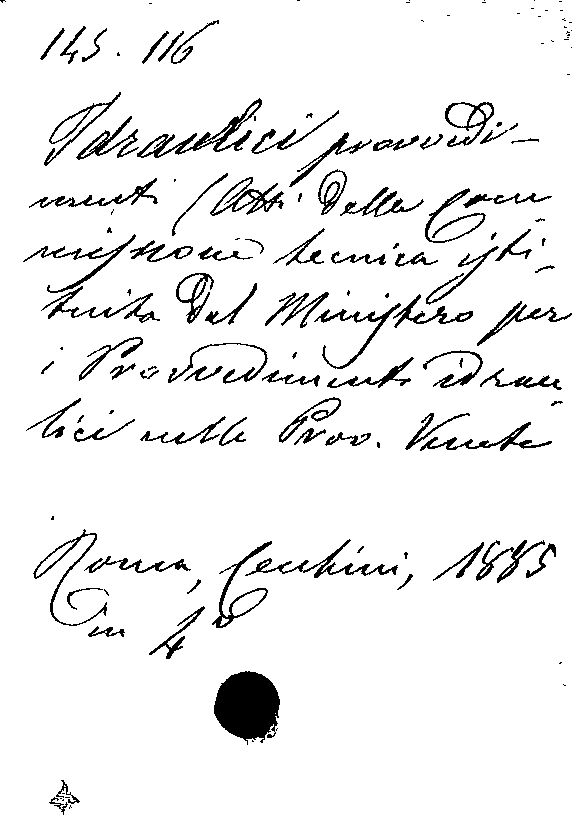 145. 116
Idraulici provvedi-
menti (Atti della Com-
missione tecnica isti-
tuita dal Ministero per
i Provvedimenti idrau-
lici nelle Prov. Venete
Roma, Cecchini, 1885
in 4°